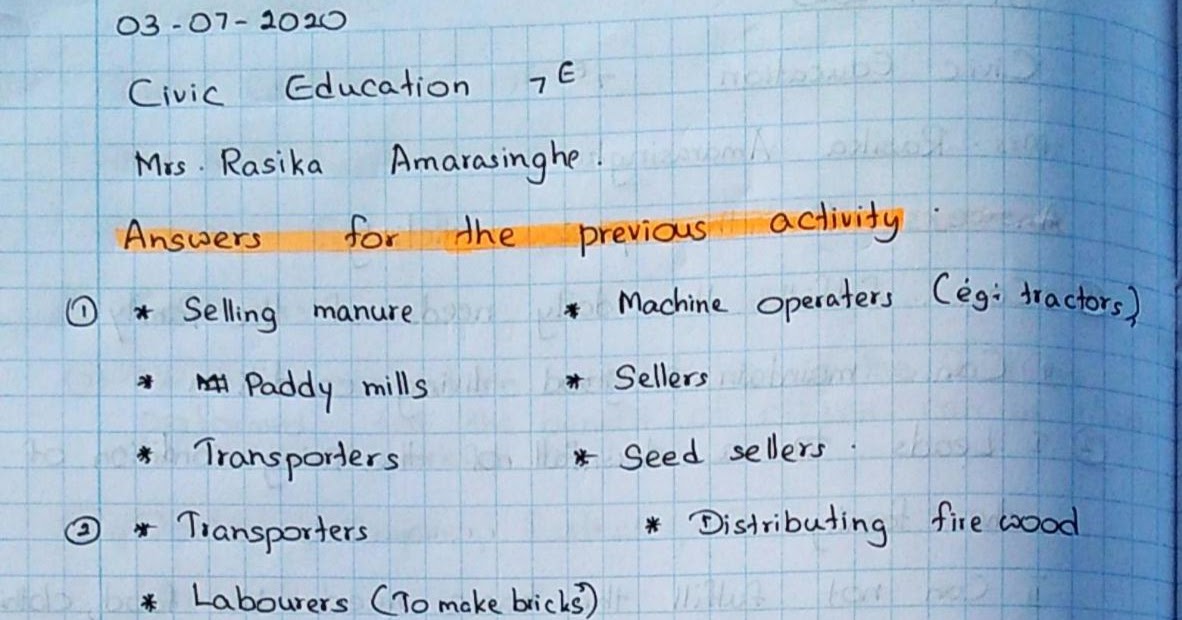 03-07-2020
Civic Education 7E
Mrs. Rasika Amarasinghe.
Answers for the previous activity.
① * Selling manure * Machine operaters (eg: tractors)
* Paddy mills * Sellers
* Transporters * Seed sellers.
② * Transporters * Distributing fire wood
* Labourers (To make bricks)